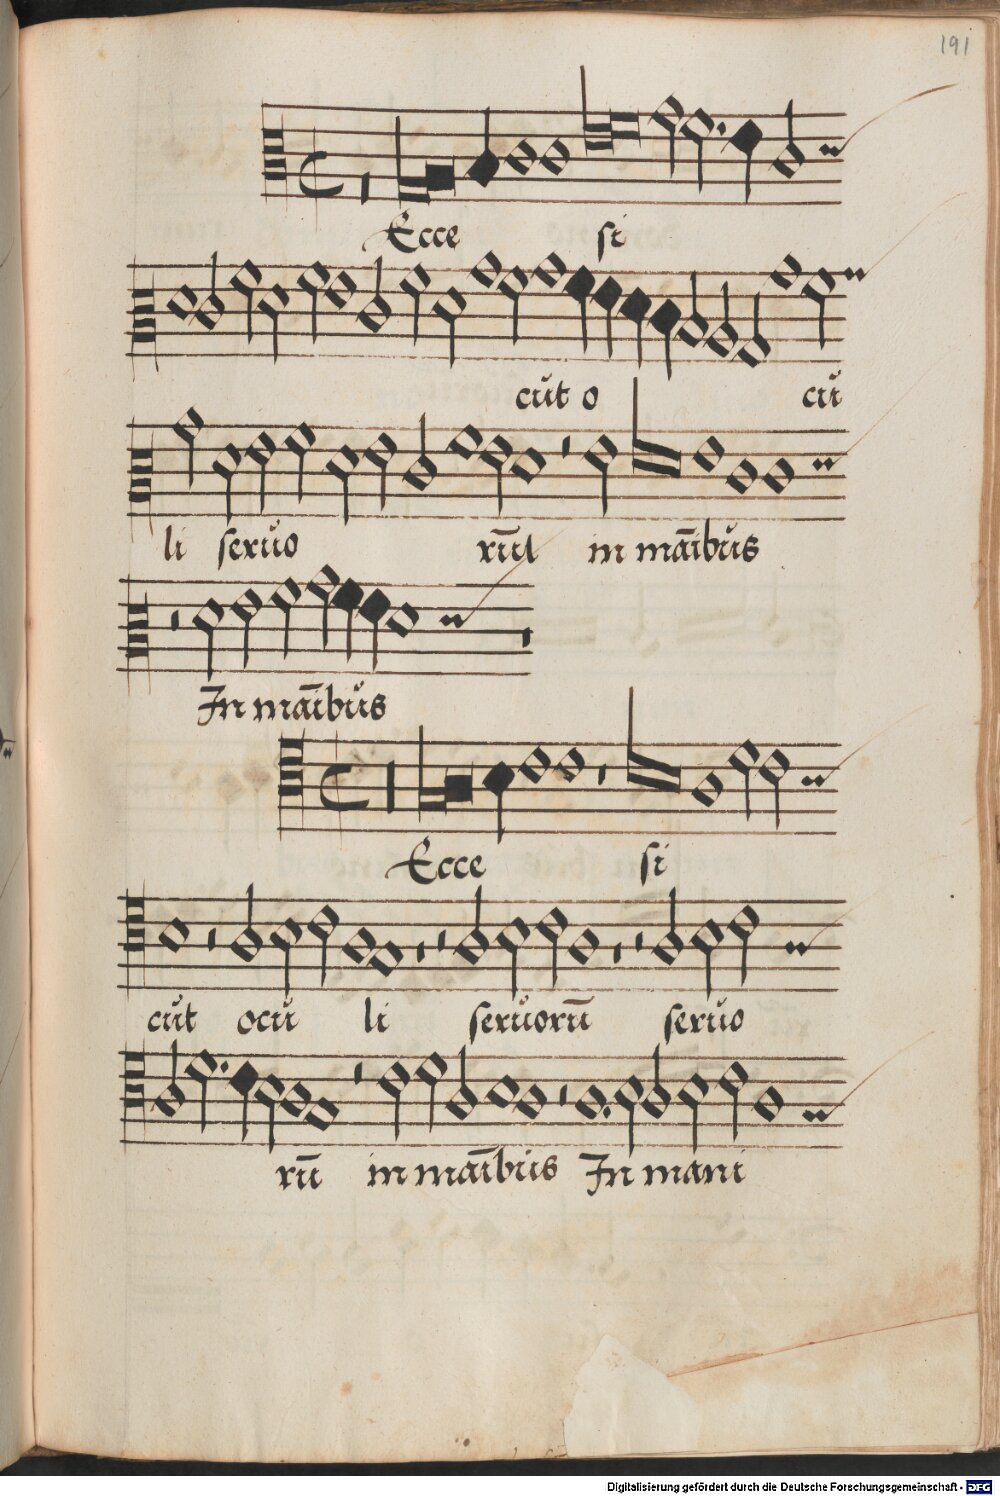 191
Ecce si
cūt o cū
li seruo rūl in māibus
In māibus
Ecce si
cūt ocu li seruorū seruo
rū in māibus In mani
Digitalisierung gefördert durch die Deutsche Forschungsgemeinschaft - DFG